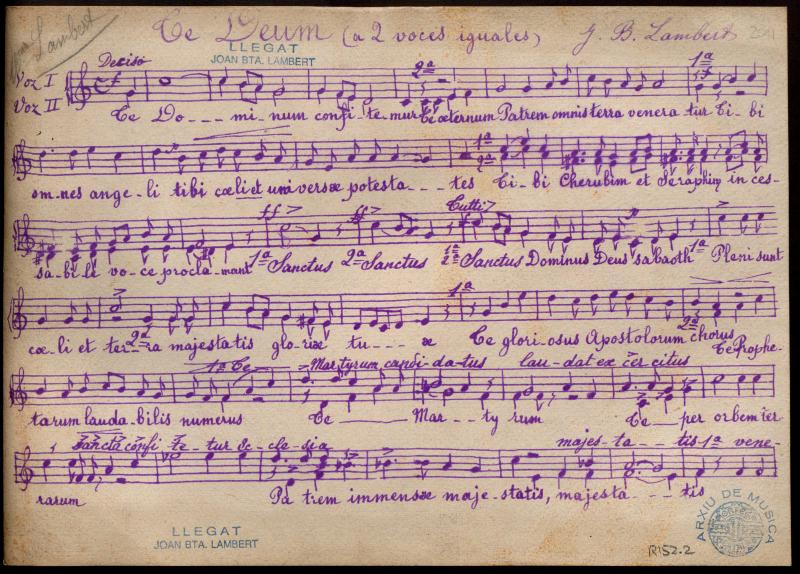 Lambert
Te Deum (a 2 voces iguales) J. B. Lambert
LLEGAT
JOAN BTA. LAMBERT
Deciso 2ª 1ª
Voz I
Voz II
ff
Te Do - - - mi - num confi - te - mur Te æternum Patrem omnis terra venera tur Ti - bi
1ª
2ª
om - nes ange - li tibi cœli et universæ potesta - - - tes Ti - bi Cherubim et Seraphim in ces -
ff > ff > Tutti >
sa - bi - li vo - ce procla - mant 1ª Sanctus 2ª Sanctus 1ª 2ª Sanctus Dominus Deus sabaoth 1ª Pleni sunt
1ª
cœ - li et ter - 2ª ra majestatis glo - riæ tu - - - æ Te glori - osus Apostolorum 2ª chorus
Te Prophe -
1ª Te - - Martyrum candi - da - tus lau - dat ex er citus
tarum lauda - bilis numerus Te Mar - - ty rum Te per orbem ter
Sancta confi te - tur ec - cle - sia majes - ta - - tis 1ª vene -
rarum Pa trem immensæ maje - statis, majesta - - - tis
LLEGAT
JOAN BTA. LAMBERT
R152.2
ARXIU DE MUSICA